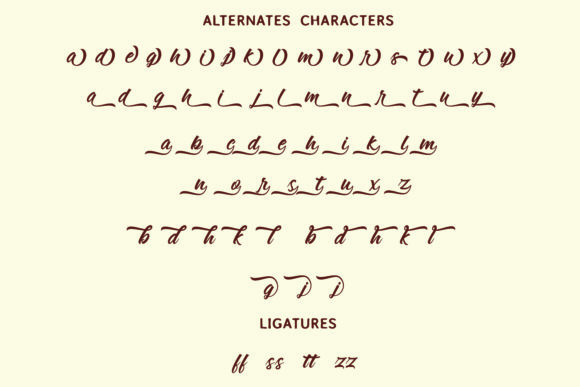 ALTERNATES CHARACTERS
a d e g h i j k l m n r s t u x y
a d g h i j l m n r t u y
a b c d e h i k l m
n o r s t u x z
b d h k l b d h k l
g j j
LIGATURES
ff ss tt zz